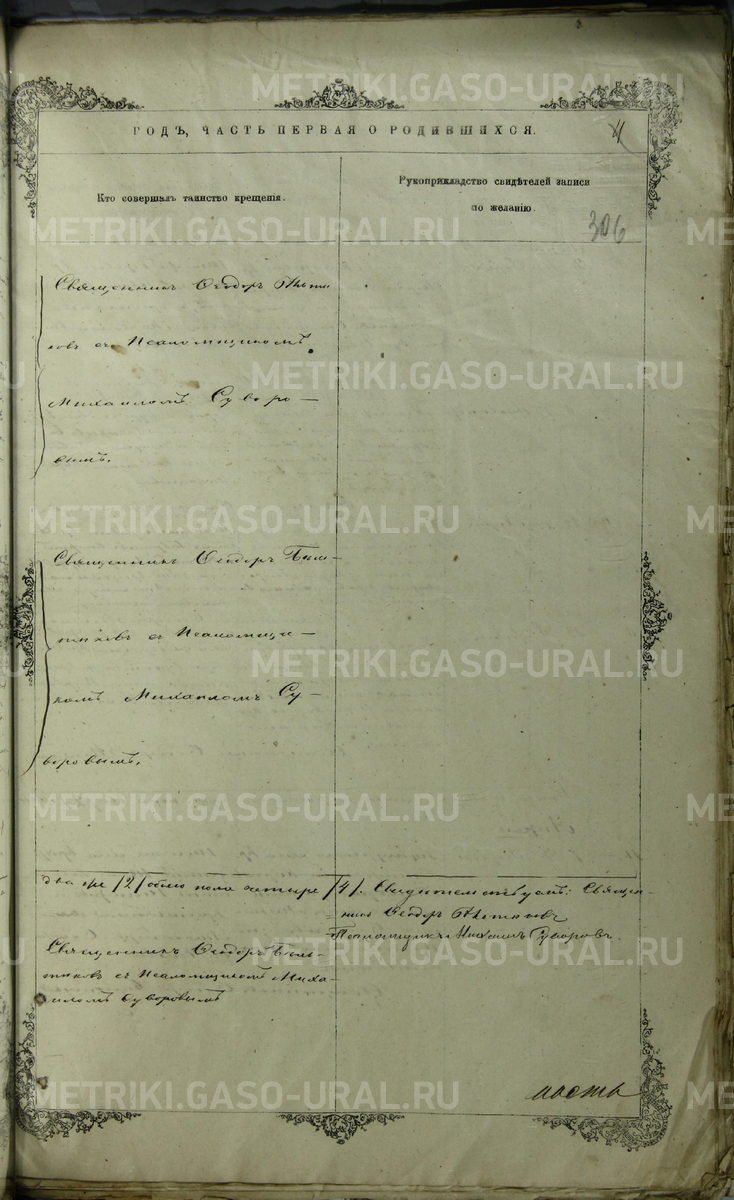 METRIKI.GASO-URAL.RU
ГОДЪ, ЧАСТЬ ПЕРВАЯ О РОДИВШИХСЯ.
4
Кто совершалъ таинство крещенія.
Рукоприкладство свидѣтелей записи
по желанію.
306
Священникъ Ѳеодоръ
ковъ съ Псаломщикомъ
Михаиломъ Суворо-
вымъ.
Священникъ Ѳеодоръ Бѣль-
тиковъ съ Псаломщи-
комъ Михаиломъ Су-
воровымъ.
два же /2/ обоего пола четыре /4/. Свидѣтельствуемъ: Священ-
никъ Ѳеодоръ
Псаломщикъ Михаилъ Суворовъ.
Священникъ Ѳеодоръ Бѣль-
тиковъ съ Псаломщикомъ Миха-
иломъ Суворовымъ
METRIKI.GASO-URAL.RU